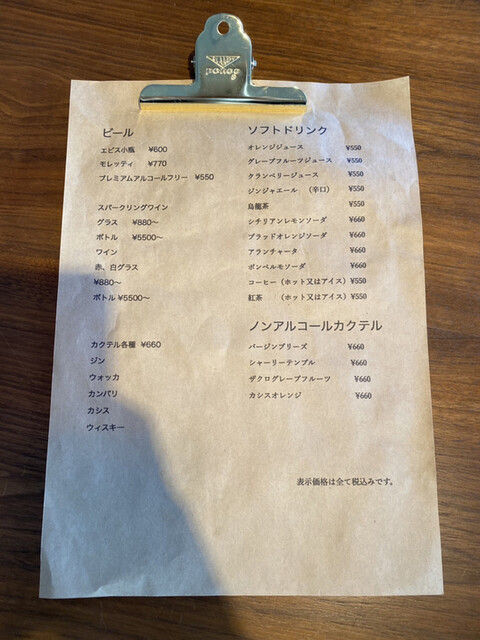 ビール
エビス小瓶 ¥600
モレッティ ¥770
プレミアムアルコールフリー ¥550
スパークリングワイン
グラス ¥880〜
ボトル ¥5500〜
ワイン
赤、白グラス
¥880〜
ボトル ¥5500〜
カクテル各種 ¥660
ジン
ウォッカ
カンパリ
カシス
ウィスキー
ソフトドリンク
オレンジジュース ¥550
グレープフルーツジュース ¥550
クランベリージュース ¥550
ジンジャエール (辛口) ¥550
烏龍茶 ¥550
シチリアンレモンソーダ ¥660
ブラッドオレンジソーダ ¥660
アランチャータ ¥660
ポンペルモソーダ ¥660
コーヒー (ホット又はアイス) ¥550
紅茶 (ホット又はアイス) ¥550
ノンアルコールカクテル
バージンブリーズ ¥660
シャーリーテンプル ¥660
ザクログレープフルーツ ¥660
カシスオレンジ ¥660
表示価格は全て税込みです。